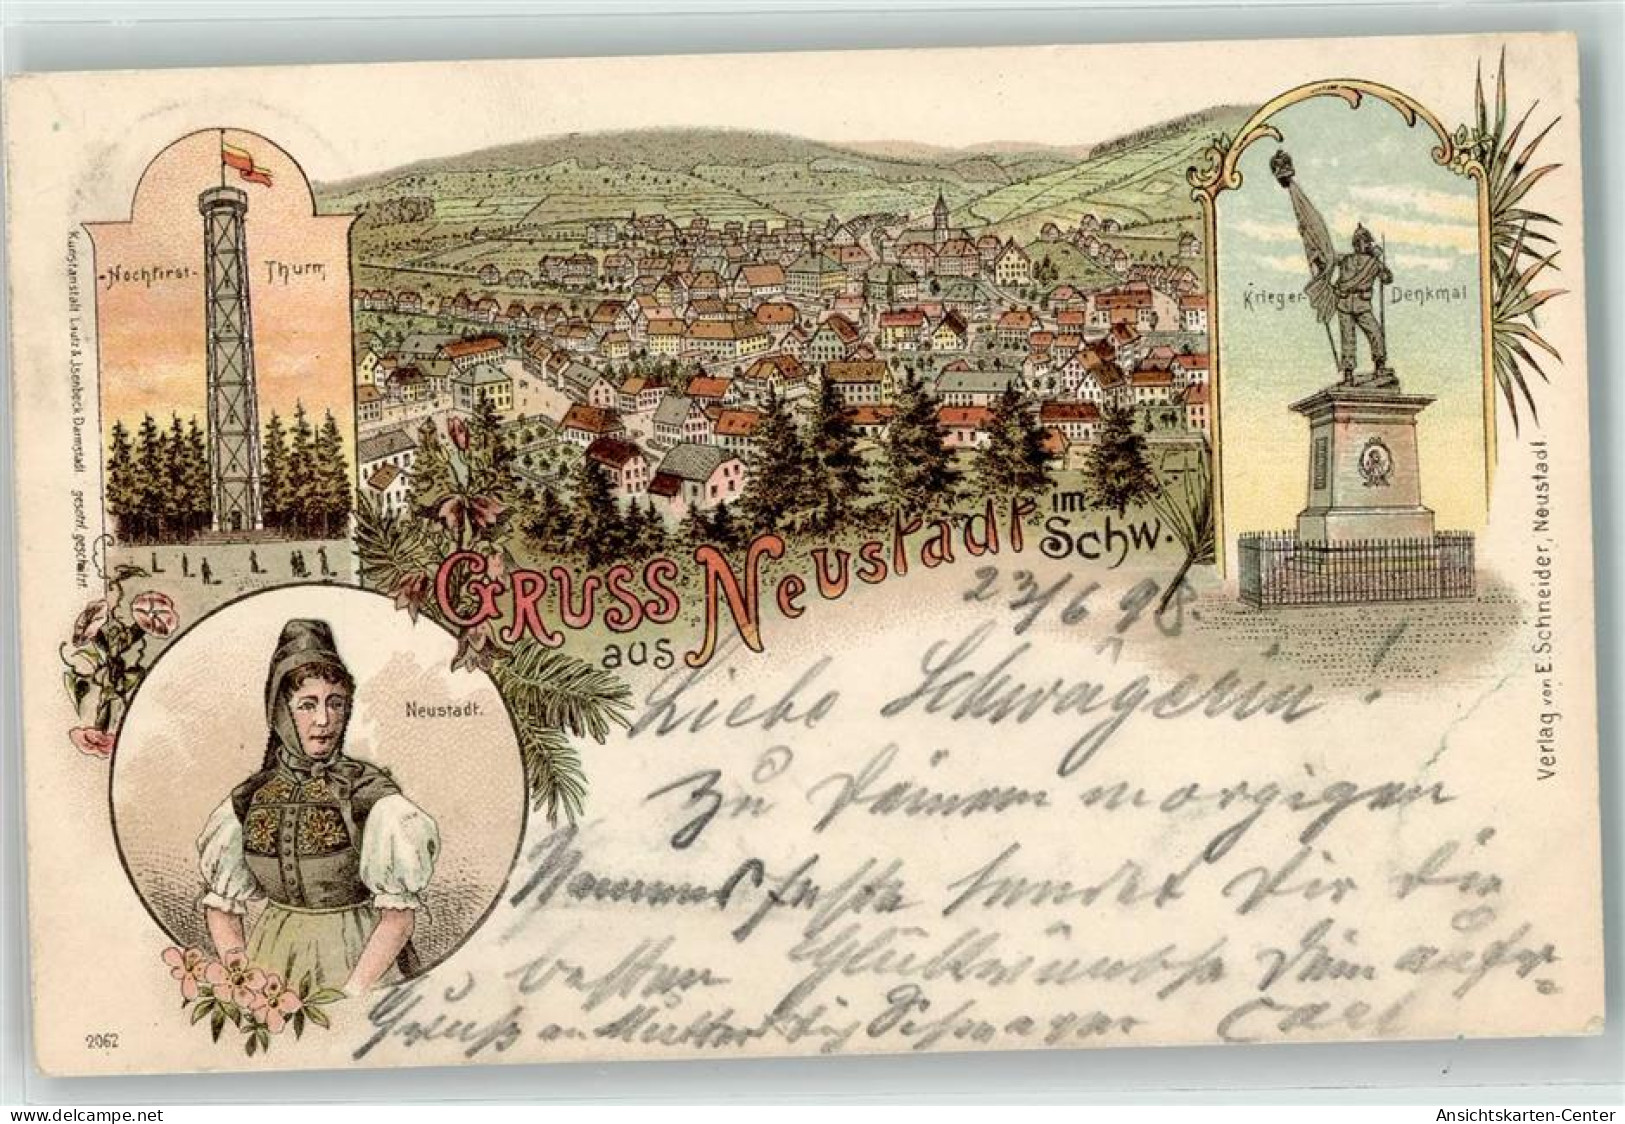 Hochfirst-Thurm
Krieger-Denkmal
Kunstanstalt Lautz & Jsenbeck Darmstadt gesetzl. geschützt.
Gruss aus Neustadt im Schw.
Neustadt.
Verlag von E. Schneider, Neustadt
23/6 98.
Liebe Schwägerin!
Zu Deinem morgigen
Namensfeste sendet Dir die
besten Glückwünsche Dein aufr.
Gruß an Mutter Schwager Carl
2062
Ansichtskarten-Center